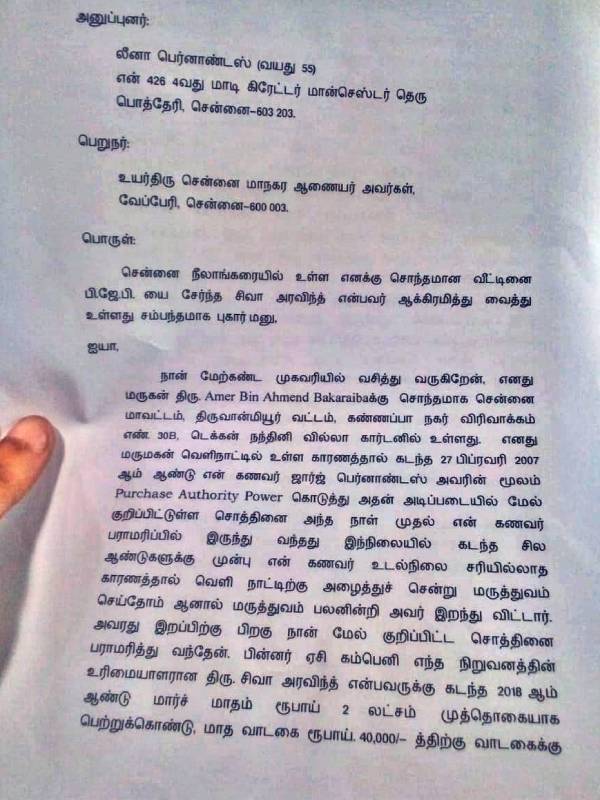 அனுப்புனர்:
லீனா பெர்னாண்டஸ் (வயது 55)
என் 426 4வது மாடி கிரேட்டர் மான்செஸ்டர் தெரு
பொத்தேரி, சென்னை-603 203.
பெறுநர்:
உயர்திரு சென்னை மாநகர ஆணையர் அவர்கள்,
வேப்பேரி, சென்னை-600 003.
பொருள்:
சென்னை நீலாங்கரையில் உள்ள எனக்கு சொந்தமான வீட்டினை
பி.ஜே.பி. யை சேர்ந்த சிவா அரவிந்த் என்பவர் ஆக்கிரமித்து வைத்து
உள்ளது சம்பந்தமாக புகார் மனு.
ஐயா,
நான் மேற்கண்ட முகவரியில் வசித்து வருகிறேன், எனது
மருகன் திரு. Amer Bin Ahmend Bakaraibaக்கு சொந்தமாக சென்னை
மாவட்டம், திருவான்மியூர் வட்டம், கண்ணப்பா நகர் விரிவாக்கம்
எண். 30B, டெக்கன் நந்தினி வில்லா கார்டனில் உள்ளது. எனது
மருமகன் வெளிநாட்டில் உள்ள காரணத்தால் கடந்த 27 பிப்ரவரி 2007
ஆம் ஆண்டு என் கணவர் ஜார்ஜ் பெர்னாண்டஸ் அவரின் மூலம்
Purchase Authority Power கொடுத்து அதன் அடிப்படையில் மேல்
குறிப்பிட்டுள்ள சொத்தினை அந்த நாள் முதல் என் கணவர்
பராமரிப்பில் இருந்து வந்தது இந்நிலையில் கடந்த சில
ஆண்டுகளுக்கு முன்பு என் கணவர் உடல்நிலை சரியில்லாத
காரணத்தால் வெளி நாட்டிற்கு அழைத்துச் சென்று மருத்துவம்
செய்தோம் ஆனால் மருத்துவம் பலனின்றி அவர் இறந்து விட்டார்.
அவரது இறப்பிற்கு பிறகு நான் மேல் குறிப்பிட்ட சொத்தினை
பராமரித்து வந்தேன். பின்னர் ஏசி கம்பெனி எந்த நிறுவனத்தின்
உரிமையாளரான திரு. சிவா அரவிந்த் என்பவருக்கு கடந்த 2018 ஆம்
ஆண்டு மார்ச் மாதம் ரூபாய் 2 லட்சம் முத்தொகையாக
பெற்றுக்கொண்டு, மாத வாடகை ரூபாய். 40,000/- த்திற்கு வாடகைக்கு